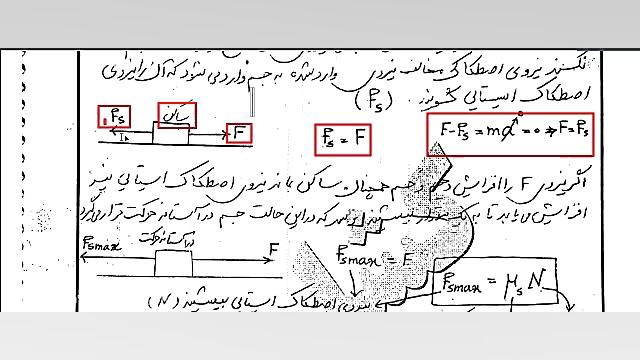 نکنند نیروی اصطکاک مخالف نیروی وارد شده به جسم وارد می شود که آن را نیروی
اصطکاک ایستایی گویند. (fs)
fs ساکن F
fs = F
F-fs = ma = 0 ⇒ F = fs
اگر نیروی F را افزایش دهیم و جسم همچنان ساکن بماند نیروی اصطکاک ایستایی نیز
افزایش می یابد تا به یک مقدار بیشینه برسد که در این حالت جسم در آستانه حرکت قرار می گیرد
fsmax در آستانه حرکت F
fsmax = F
fsmax = μs N
نیروی اصطکاک ایستایی بیشینه (N)